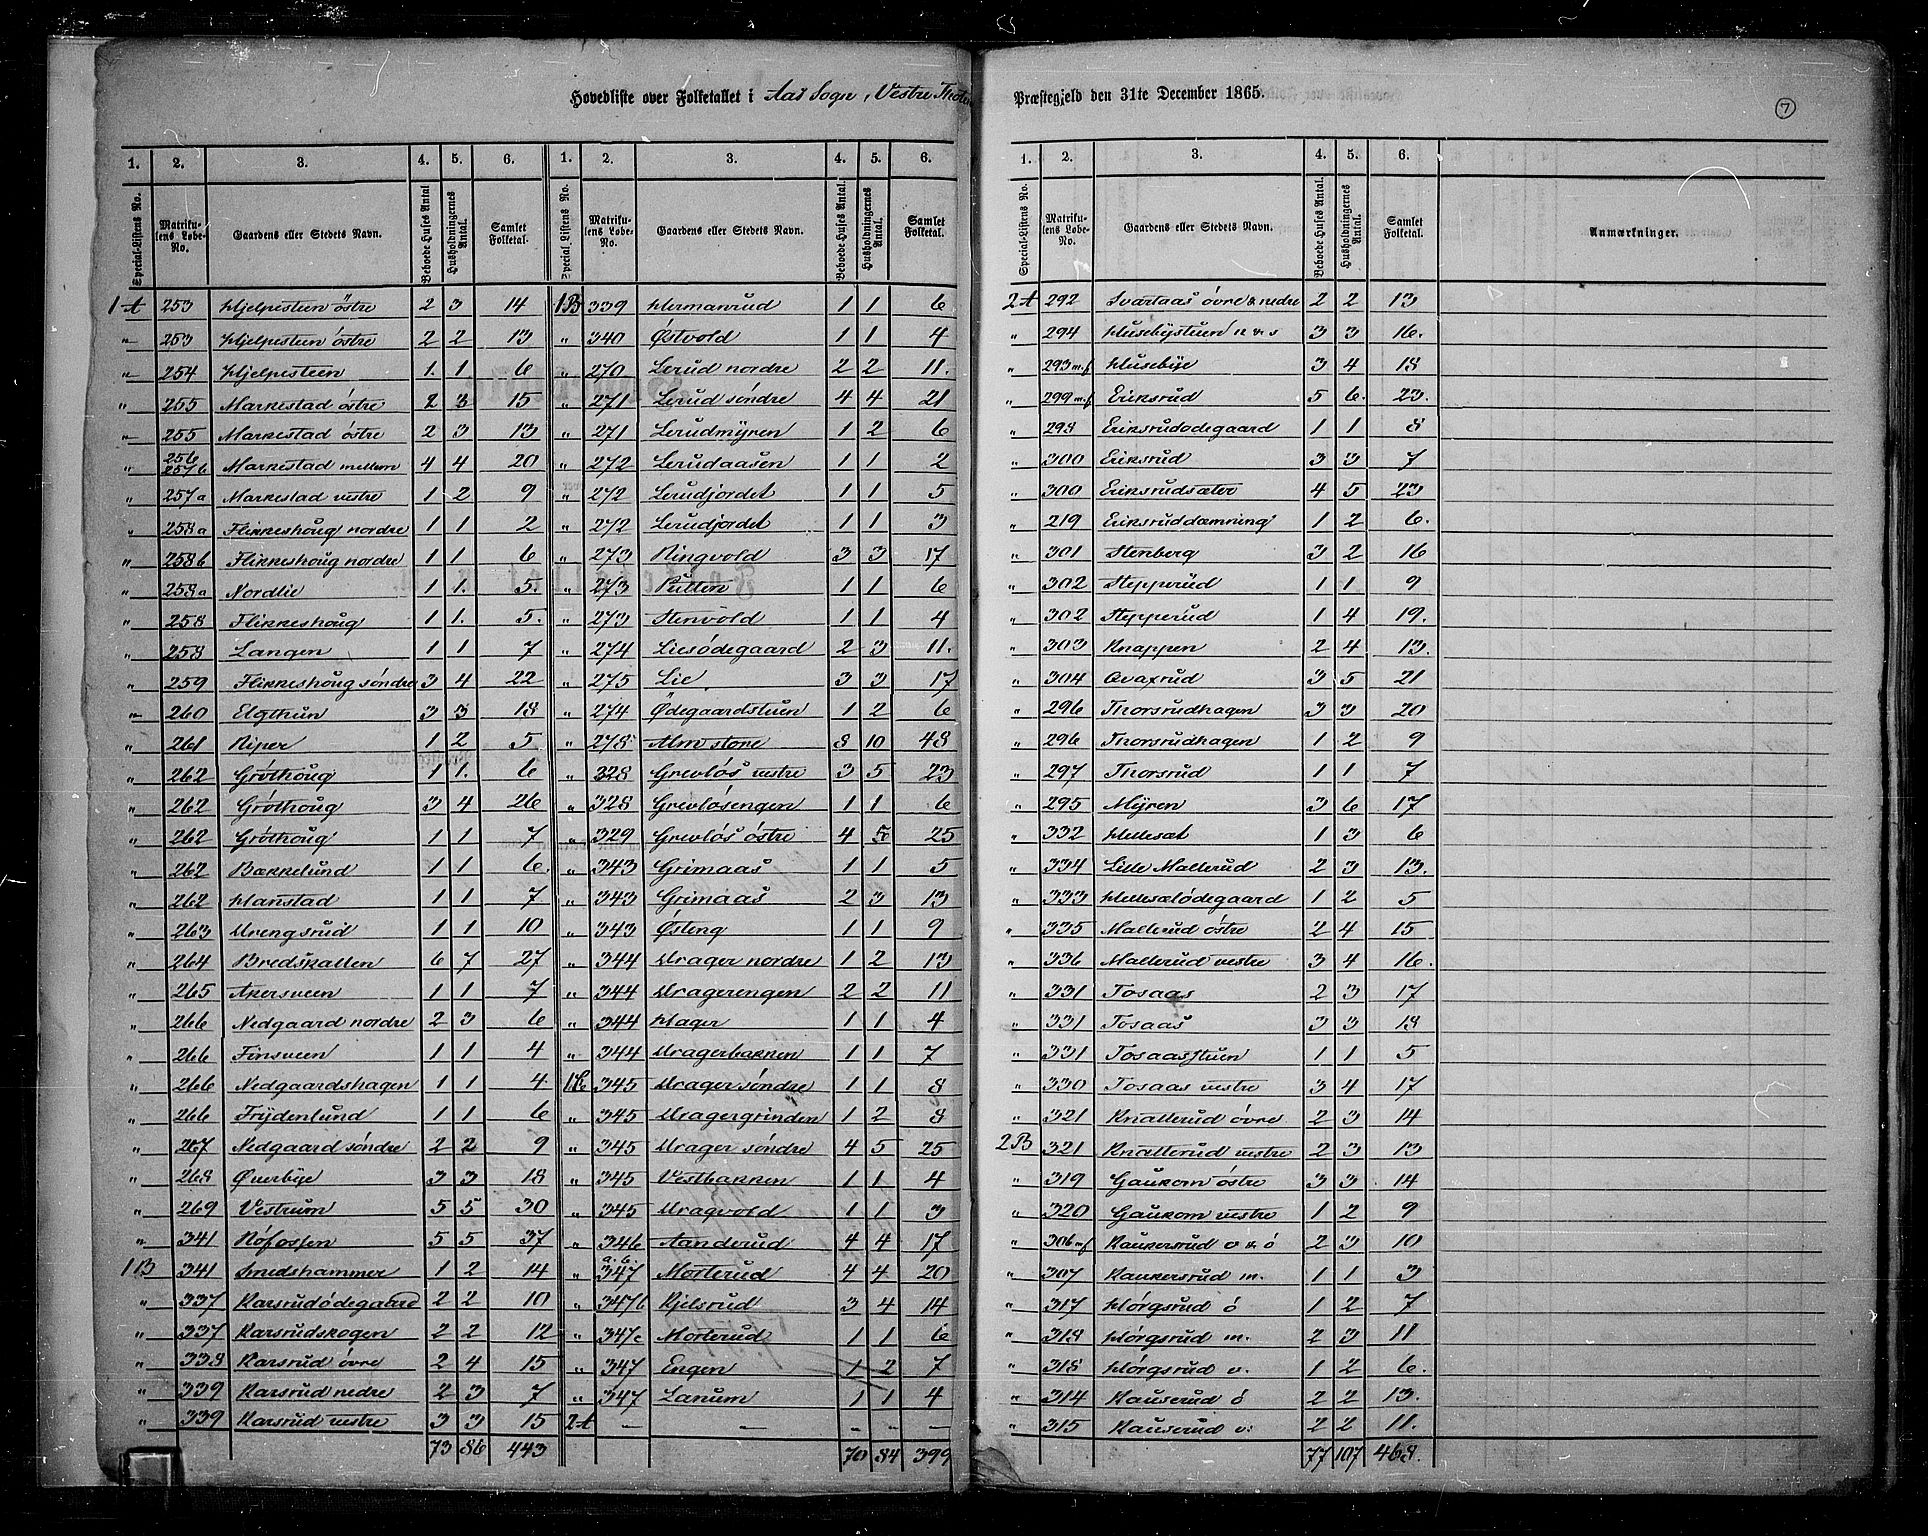 Hovedliste over Folketallet i Aas Sogn, Vestre Thoten
Præstegjeld den 31te December 1865.
7
1. 2. 3. 4. 5. 6. 1. 2. 3. 4. 5. 6.
Special-Listens No. Matrikulens Løbe-No. Gaardens eller Stedets Navn. Beboede Huses Antal Husholdningernes Antal. Samlet Folketal. Special Listens No. Matrikulens Løbe-No. Gaardens eller Stedets Navn. Beboede Huses Antal. Husholdningernes Antal. Samlet Folketal.
1 A 253 Hjelpesteen östre 2 3 14
" 253 Hjelpesteen östre 2 2 13
" 254 Hjelpesteen 1 1 6
" 255 Markestad östre 2 3 15
" 255 Markestad östre 2 3 13
" 256 257b Markestad mellem 4 4 20
" 257a Markestad vestre 1 2 9
" 258a Flikkeshoug nordre 1 1 2
" 258b Flikkeshoug nordre 1 1 6
" 258a Nordlie 1 1. 5.
" 258 Flikkeshoug 1 1. 5.
" 258 Langen 1 1 7
" 259 Flikkeshoug söndre 3 4 22
" 260 Elgthun 3 3 18
" 261 Riper 1 2 5
" 262 Gröthoug 1 1. 6
" 262 Gröthoug 3 4 26
" 262 Gröthoug 1 1 7
" 262 Bakkelund 1 1 6.
" 262 Hanstad 1 1 7
" 263 Urengsrud 1 1 10
" 264 Bredskallen 6 7 27
" 265 Akersveen 1 1 7
" 266 Nedgaard nordre 2 3 6
" 266 Finsveen 1 1 4
" 266 Nedgaardshagen 1 1 4
" 266 Frydenlund 1 1 6
" 267 Nedgaard söndre 2 2 9
" 268 Øverbye 3 3 18
" 269 Vestrum 5 5 30
" 341 Höfossen 5 5 37
1 B 341 Smedshammer 1 2 14
" 337 Karsrudödegaard 2 2 10
" 337 Karsrudskogen 2 2 12
" 338 Karsrud övre 2 4 15
" 339 Karsrud nedre 2 3 7
" 339 Karsrud vestre 3 3 15
73 86 443
1B 339 Hermanrud 1 1 6
" 340 Østvold 1 1 4
" 270 Lerud nordre 2 2 11.
" 271 Lerud söndre 4 4 21
" 271 Lerudmyren 1 2 6
" 272 Lerudaasen 1 1 2
" 272 Lerudjordet 1 1 5
" 272 Lerudjordet 1 1 3
" 273 Ringvold 3 3 17
" 273 Pütten 1 1 6
" 273 Stenvold 1 1 4
" 274 Liesödegaard 2 3 11.
" 275 Lie 3 3 17
" 274 Ødegaardstuen 1 2 6
" 278 Alm store 8 10 48
" 328 Grevlös vestre 3 5 23
" 328 Grevlösengen 1 1 6
" 329 Grevlös östre 4 5 25
" 343 Grimaas 1 1 5
" 343 Grimaas 2 3 13
" 343 Østeng 1 1 9
" 344 Urager nordre 1 2 13
" 344 Uragerengen 2 2 11
" 344 Hager 1 1 4
" 344 Uragerbakken 1 1 7
1C 345 Urager söndre 1 1 8
" 345 Uragergrinden 1 2 8
" 345 Urager söndre 4 5 25
" 345 Vestbakken 1 1 4
" 345 Uragvold 1 1 3
" 346 Aanderud 4 4 17
" 347 a. b. Mosterud 4 4 20
" 347b Kjelsrud 3 4 14
" 347c Mosterud 1 1 6
" 347 Engen 1 2 7
" 347 Lanum 1 1 4
2A — — - - -
70 84 399
1. 2. 3. 4. 5. 6.
Special-Listens No. Matrikulens Løbe-No. Gaardens eller Stedets Navn. Beboede Huses Antal. Husholdningernes Antal. Samlet Folketal. Anmærkninger.
2 A 292 Svartaas övre & nedre 2 2 13
" 294 Husebystuen n & s 3 3 16.
" 293 m.f Husebye 3 4 18
" 299 m.f Eriksrud 5 6. 23.
" 298 Eriksrudödegaard 1 1 8
" 300 Eriksrud 3 3 7
" 300 Eriksrudsæter 4 5 23
" 219 Eriksruddæmning 1 2 6.
" 301 Stenberg 3 2 16
" 302 Stepperud 1 1 9
" 302 Stepperud 1 4 19.
" 303 Knappen 2 4 13.
" 304 Ovaxrud 3 5 21
" 296 Thorsrudhagen 3 3 20
" 296 Thorsrudhagen 1 2 9
" 297 Thorsrud 1 1 7
" 295 Myren 3 6 17
" 332 Hellesæt 1 3 6
" 334 Lille Mallerud 2 3 13.
" 333 Hellesætödegaard 1 2 5
" 335 Mallerud östre 2 4 15
" 336 Mallerud vestre 3 4 16.
" 331 Tosaas 2 3 17
" 331 Tosaas 3 3 18
" 331 Tosaasstuen 1 1 5
" 330 Tosaas vestre 3 4 17
" 321 Knallerud övre 2 3 14
2 B 321 Knallerud vestre 2 3 13
" 319 Gaukom östre 3 3 14
" 320 Gaukom vestre 1 2 9
" 306 m.f Kaukersrud v & ö 2 3 10
" 307 Kaukersrud m. 1 1 3
" 317 Hörgsrud ö 1 2 7
" 318 Hörgsrud m. 2 3 11
" 318 Hörgsrud v. 1 2 6.
" 314 Kauserud ö 2 2 13.
" 315 Kauserud v: 2 2 11.
77 107 468.